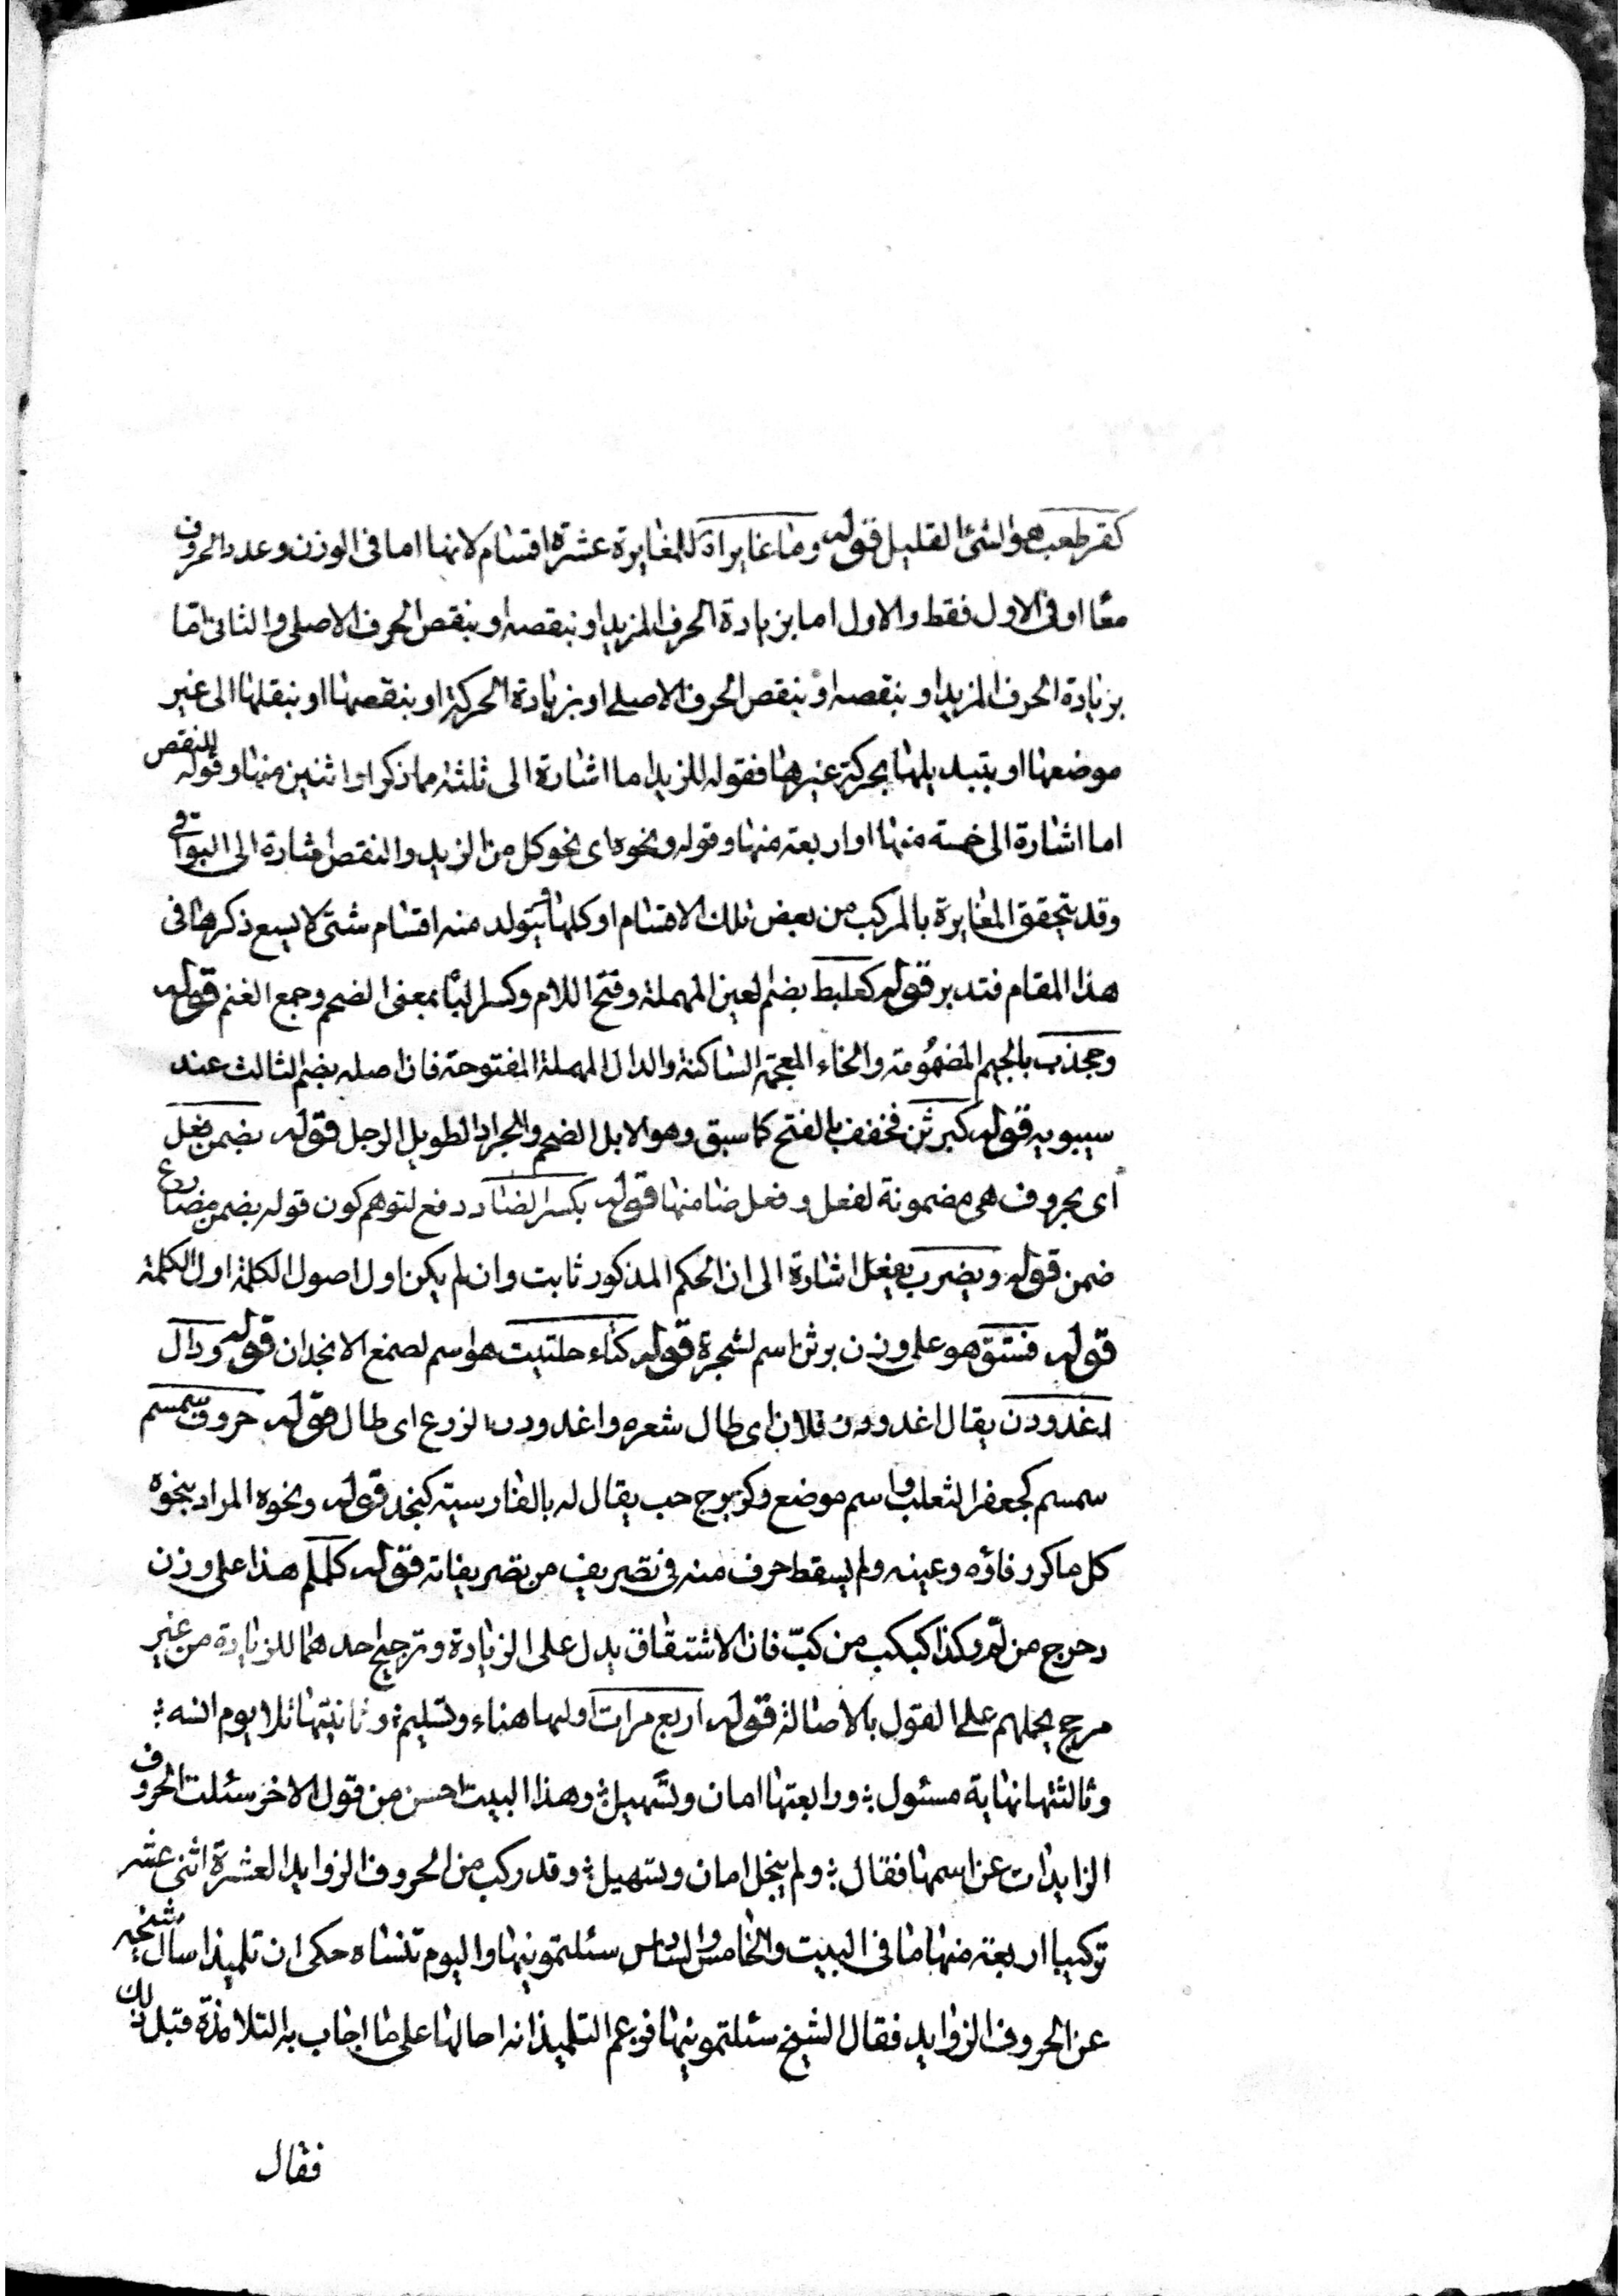 كقرطعب هو الشئ القليل قوله وما غاير اه للمغايرة عشرة اقسام لانها اما فى الوزن وعدد الحروف
معًا او فى الاول فقط والاول اما بزيادة الحرف المزيد او بنقصه او بنقص الحرف الاصلى والثانى امّا
بزيادة الحرف المزيد او بنقصه او بنقص الحرف الاصلى او بزيادة الحركة او بنقصها او بنقلها الى غير
موضعها او بتبديلها بحركة غيرها فقوله للزيد اما اشارة الى ثلثة مما ذكر او اثنين منها وقوله للنقص
اما اشارة الى خمسة منها او اربعة منها وقوله ونحوه اى نحو كل من الزيد والنقص اشارة الى البواقى
وقد يتحقق المغايرة بالمركب من بعض تلك الاقسام او كلها فيتولد منه اقسام شتى لا يسع ذكرها فى
هذا المقام فتدبر قوله كعلبط بضم العين المهملة وفتح اللام وكسر الباء بمعنى الضخم وجمع الغنم قوله
وجخدب بالجيم المضمُومة والخاء المعجمة الساكنة والدال المهملة المفتوحة فان اصله بضم الثالث عند
سيبويه قوله كبرثن فخفف بالفتح كما سبق وهو الابل الضخم والجراد الطويل الرجل قوله بضمن فعل
اى بحروف هى مضمونة لفعل وفعل ضامنها قوله بكسر الضاد دفع لتوهم كون قوله بضمن مضارع
ضمن قوله ويضرب بيفعل اشارة الى ان الحكم المذكور ثابت وان لم يكن اول اصول الكلمة اول الكلمة
قوله فستق هو على وزن برثن اسم لشجرة قوله كتاء حلتيت هو اسم لصمغ الانجدان قوله ودال
اغدودن يقال اغدودن فلان اى طال شعره واغدودن الزرع اى طال قوله حروف سمسم
سمسم كجعفر الثعلب واسم موضع وكزبرج حب يقال له بالفارسية كنجد قوله ونحوه المراد بنحوه
كل ما كرر فاؤه وعينه ولم يسقط حرف منه فى تصريف من تصريفاته فقوله كلملم هذا على وزن
دحرج من لمّ وكذا كبكب من كبّ فان الاشتقاق يدل على الزيادة وترجيح احدهما للزيادة من غير
مرجح يحملهم على القول بالاصالة قوله اربع مرات اوليها هناء وتسليم ؛ وثانيتها تلا يوم انسه ؛
وثالثتها نهاية مسئول ؛ ورابعتها امان وتسهيل ؛ وهذا البيت احسن من قول الاخر سئلت الحروف
الزايدات عن اسمها فقال ؛ ولم يبخل امان وتسهيل ؛ وقد ركب من الحروف الزوايد العشرة اثنى عشر
تركيبا اربعة منها ما فى البيت والخامس والسادس سئلتمونيها واليوم تنساه حكى ان تلميذا سأل شيخه
عن الحروف الزوايد فقال الشيخ سئلتمونيها فزعم التلميذ انه احالها على ما اجاب به التلامذة قبل ذلك
فقال